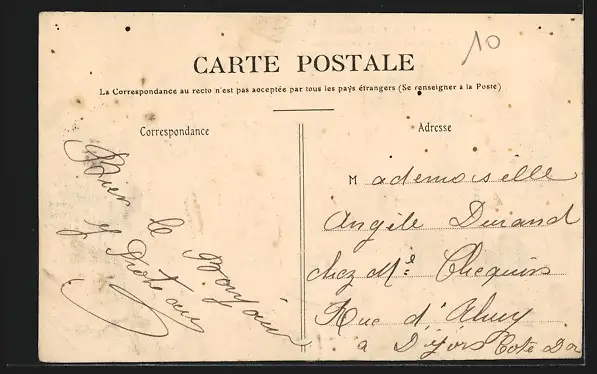 10
CARTE POSTALE
La Correspondance au recto n'est pas acceptée par tous les pays étrangers (Se renseigner à la Poste)
Correspondance
Bien le Bonjour
Adresse
Mademoiselle
Angèle Durand
chez Me
Rue d'Ahuy
à Dijon Cote Dor